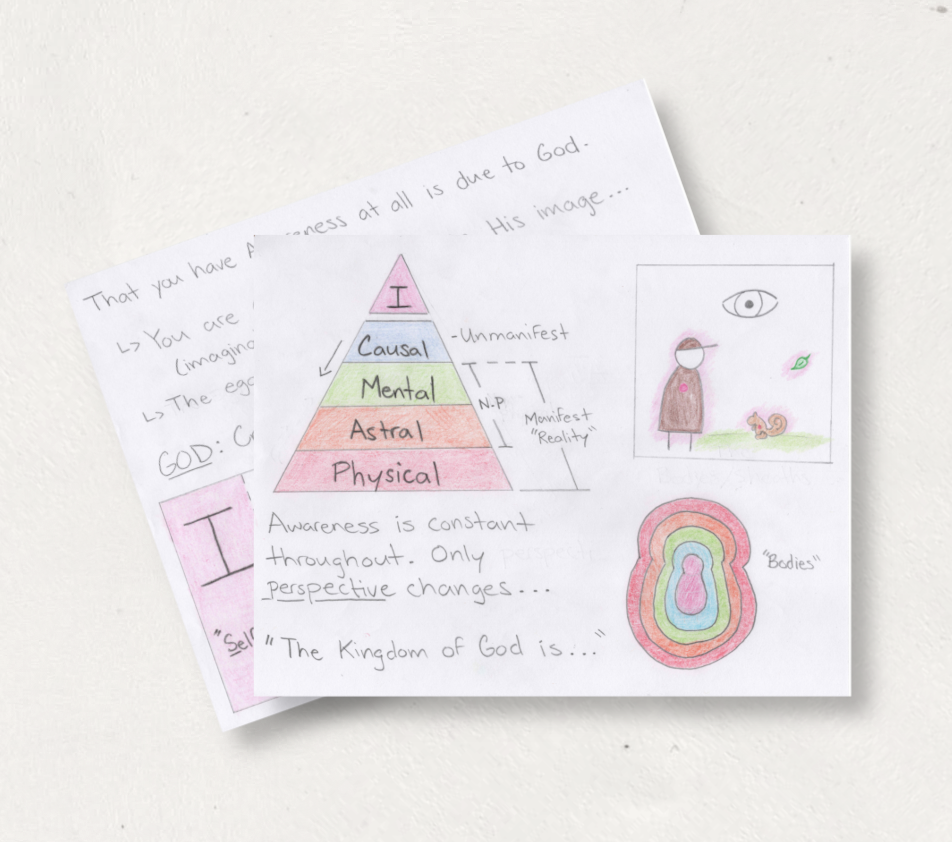 That you have A eness at all is due to God.
↳ You are His image...
(imagine
↳ The ego
GOD: C
I
"Self
I
Causal
- Unmanifest
Mental
N.P
Manifest
"Reality"
Astral
Physical
Awareness is constant
throughout. Only
perspective changes...
"The Kingdom of God is..."
"Bodies"